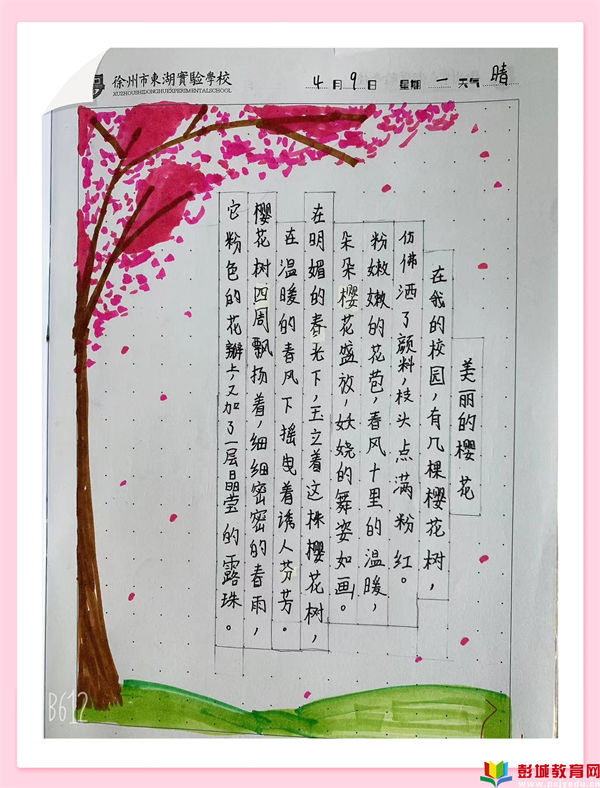 徐州市東湖實驗學校
XUZHOUSHIDONGHUEXPERIMENTALSCHOOL
4月9日 星期一 天气 晴
美丽的樱花
在我的校园，有几棵樱花树，
仿佛洒了颜料，枝头点满粉红。
粉嫩嫩的花苞，春风十里的温暖，
朵朵樱花盛放，妖娆的舞姿如画。
在明媚的春光下，玉立着这株樱花树，
在温暖的春风下摇曳着诱人芬芳。
樱花树四周飘扬着，细细密密的春雨，
它粉色的花瓣上，又加了一层晶莹的露珠。
B612
彭城教育网
www.pcjyedu.cn